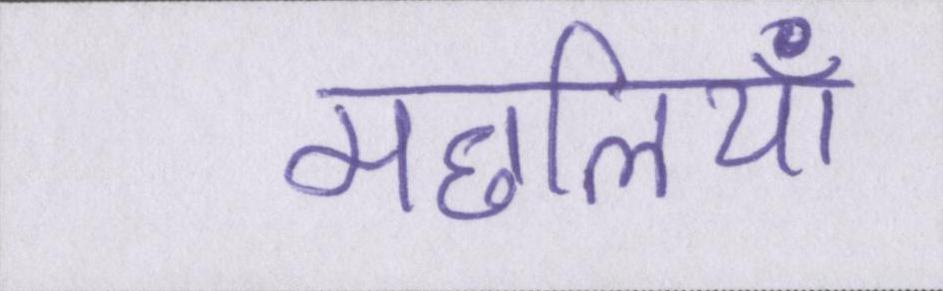 मछलियाँ